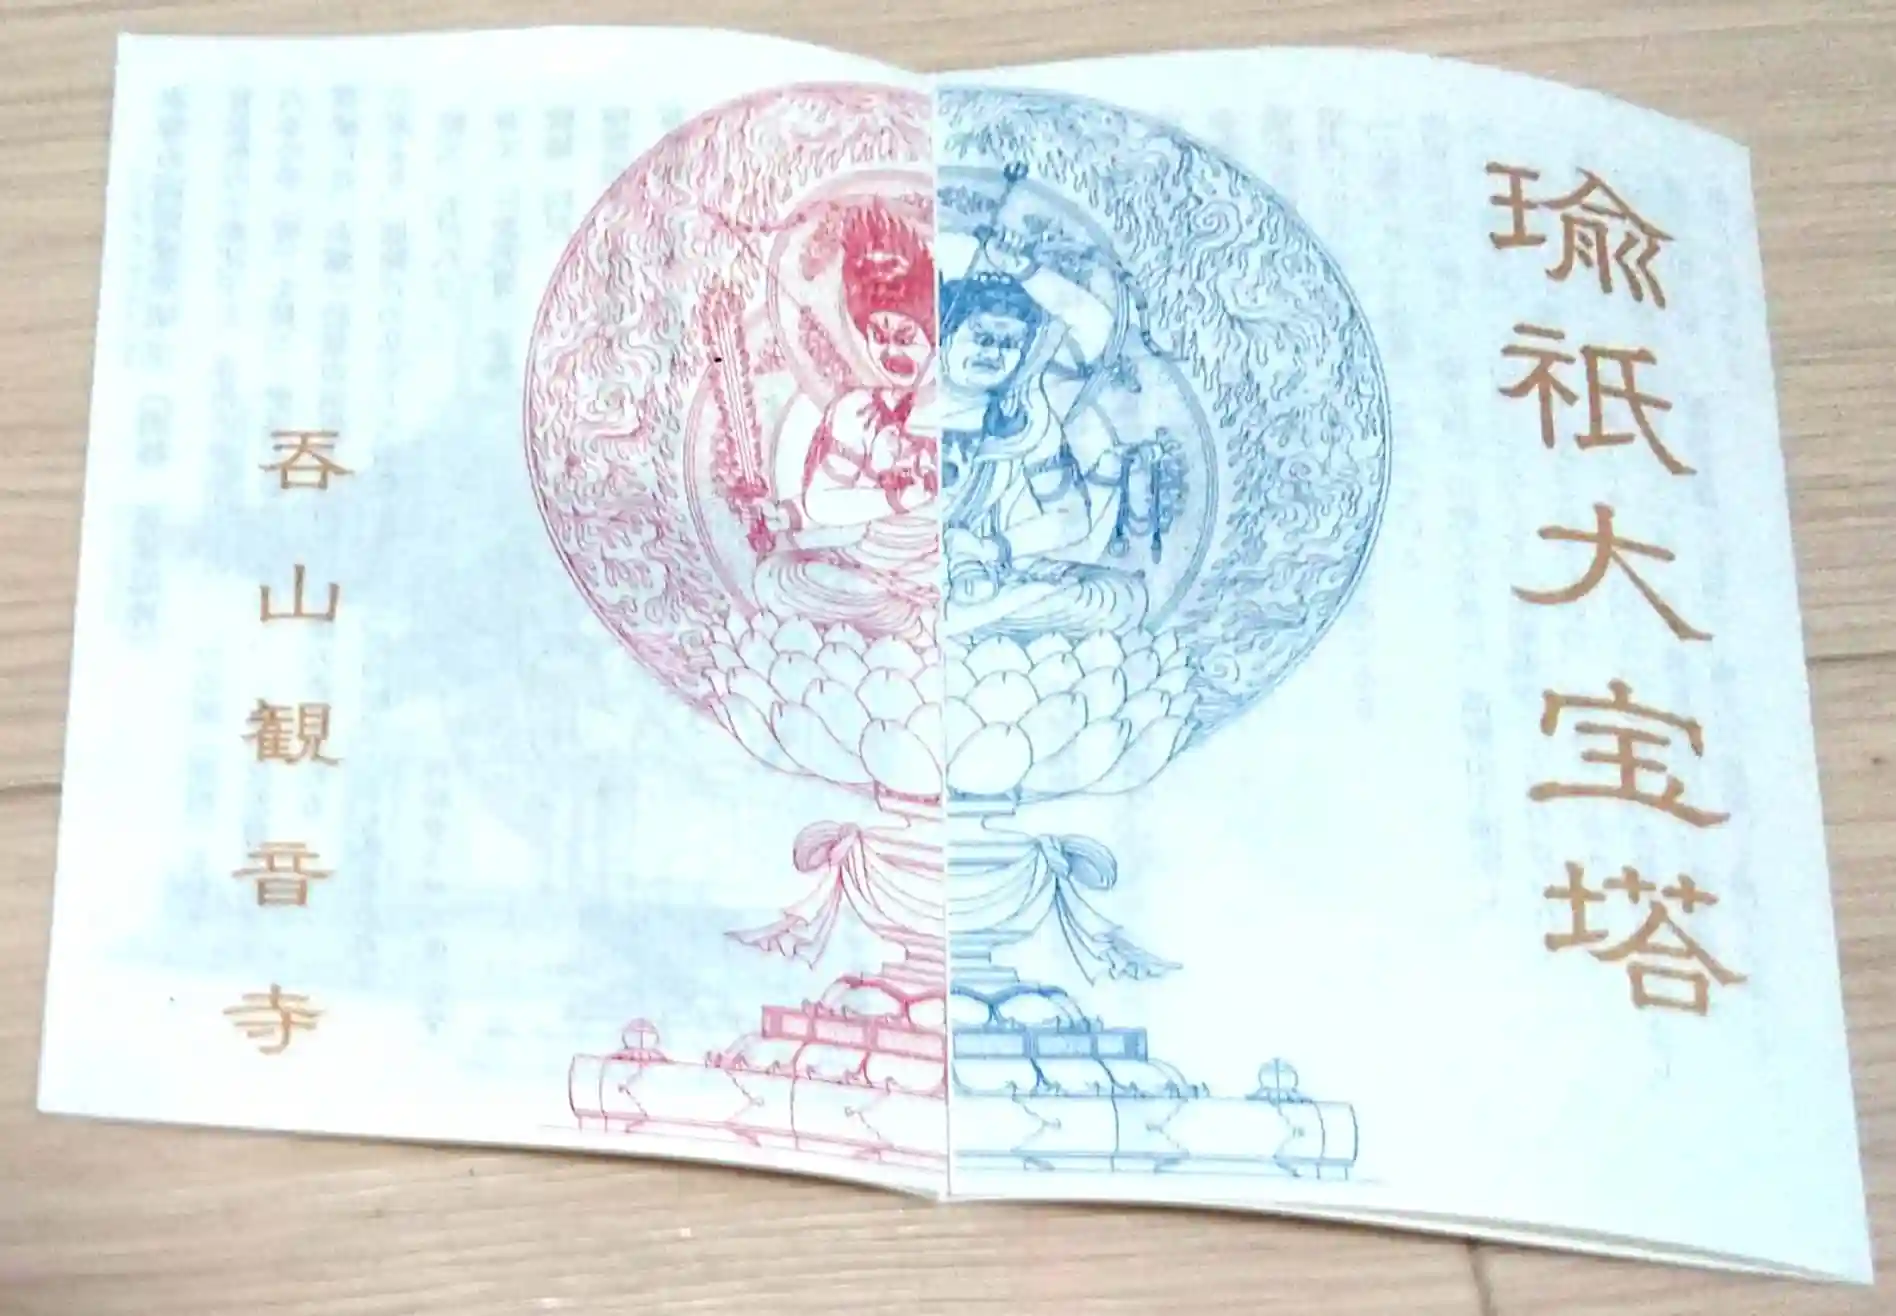 瑜祇大宝塔
呑山観音寺